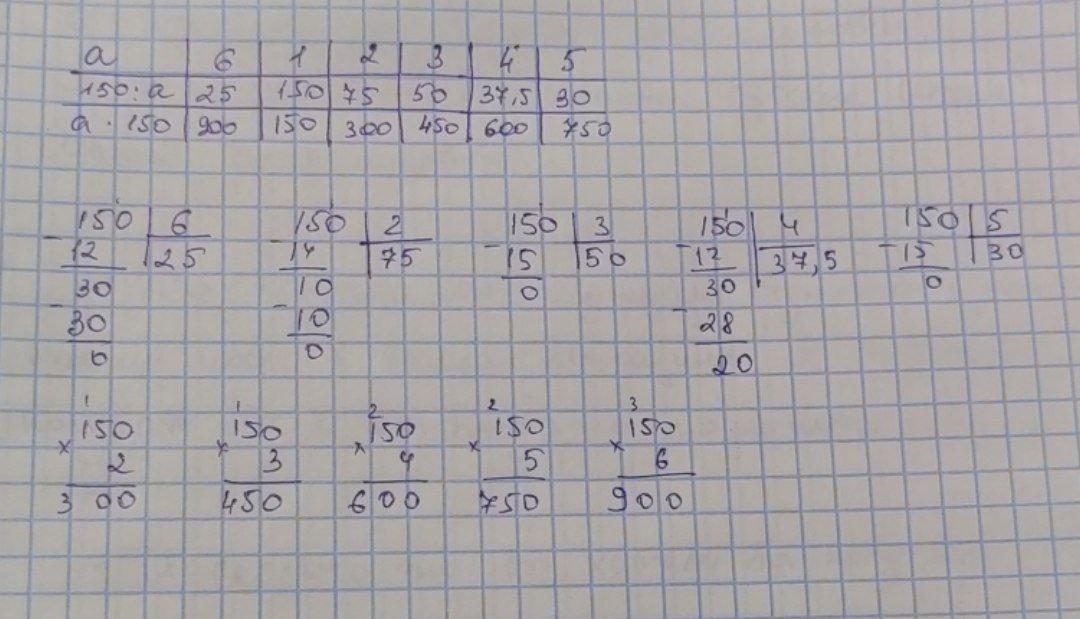 a 6 1 2 3 4 5
150:a 25 150 75 50 37,5 30
a · 150 900 150 300 450 600 750
150 6 150 2 150 3 150 4 150 5
- 12 25 - 14 75 - 15 50 - 12 37,5 - 15 30
30 10 0 30 0
- 30 - 10 - 28
0 0 20
1 1 2 2 3
150 150 150 150 150
× 2 × 3 × 4 × 5 × 6
300 450 600 750 900